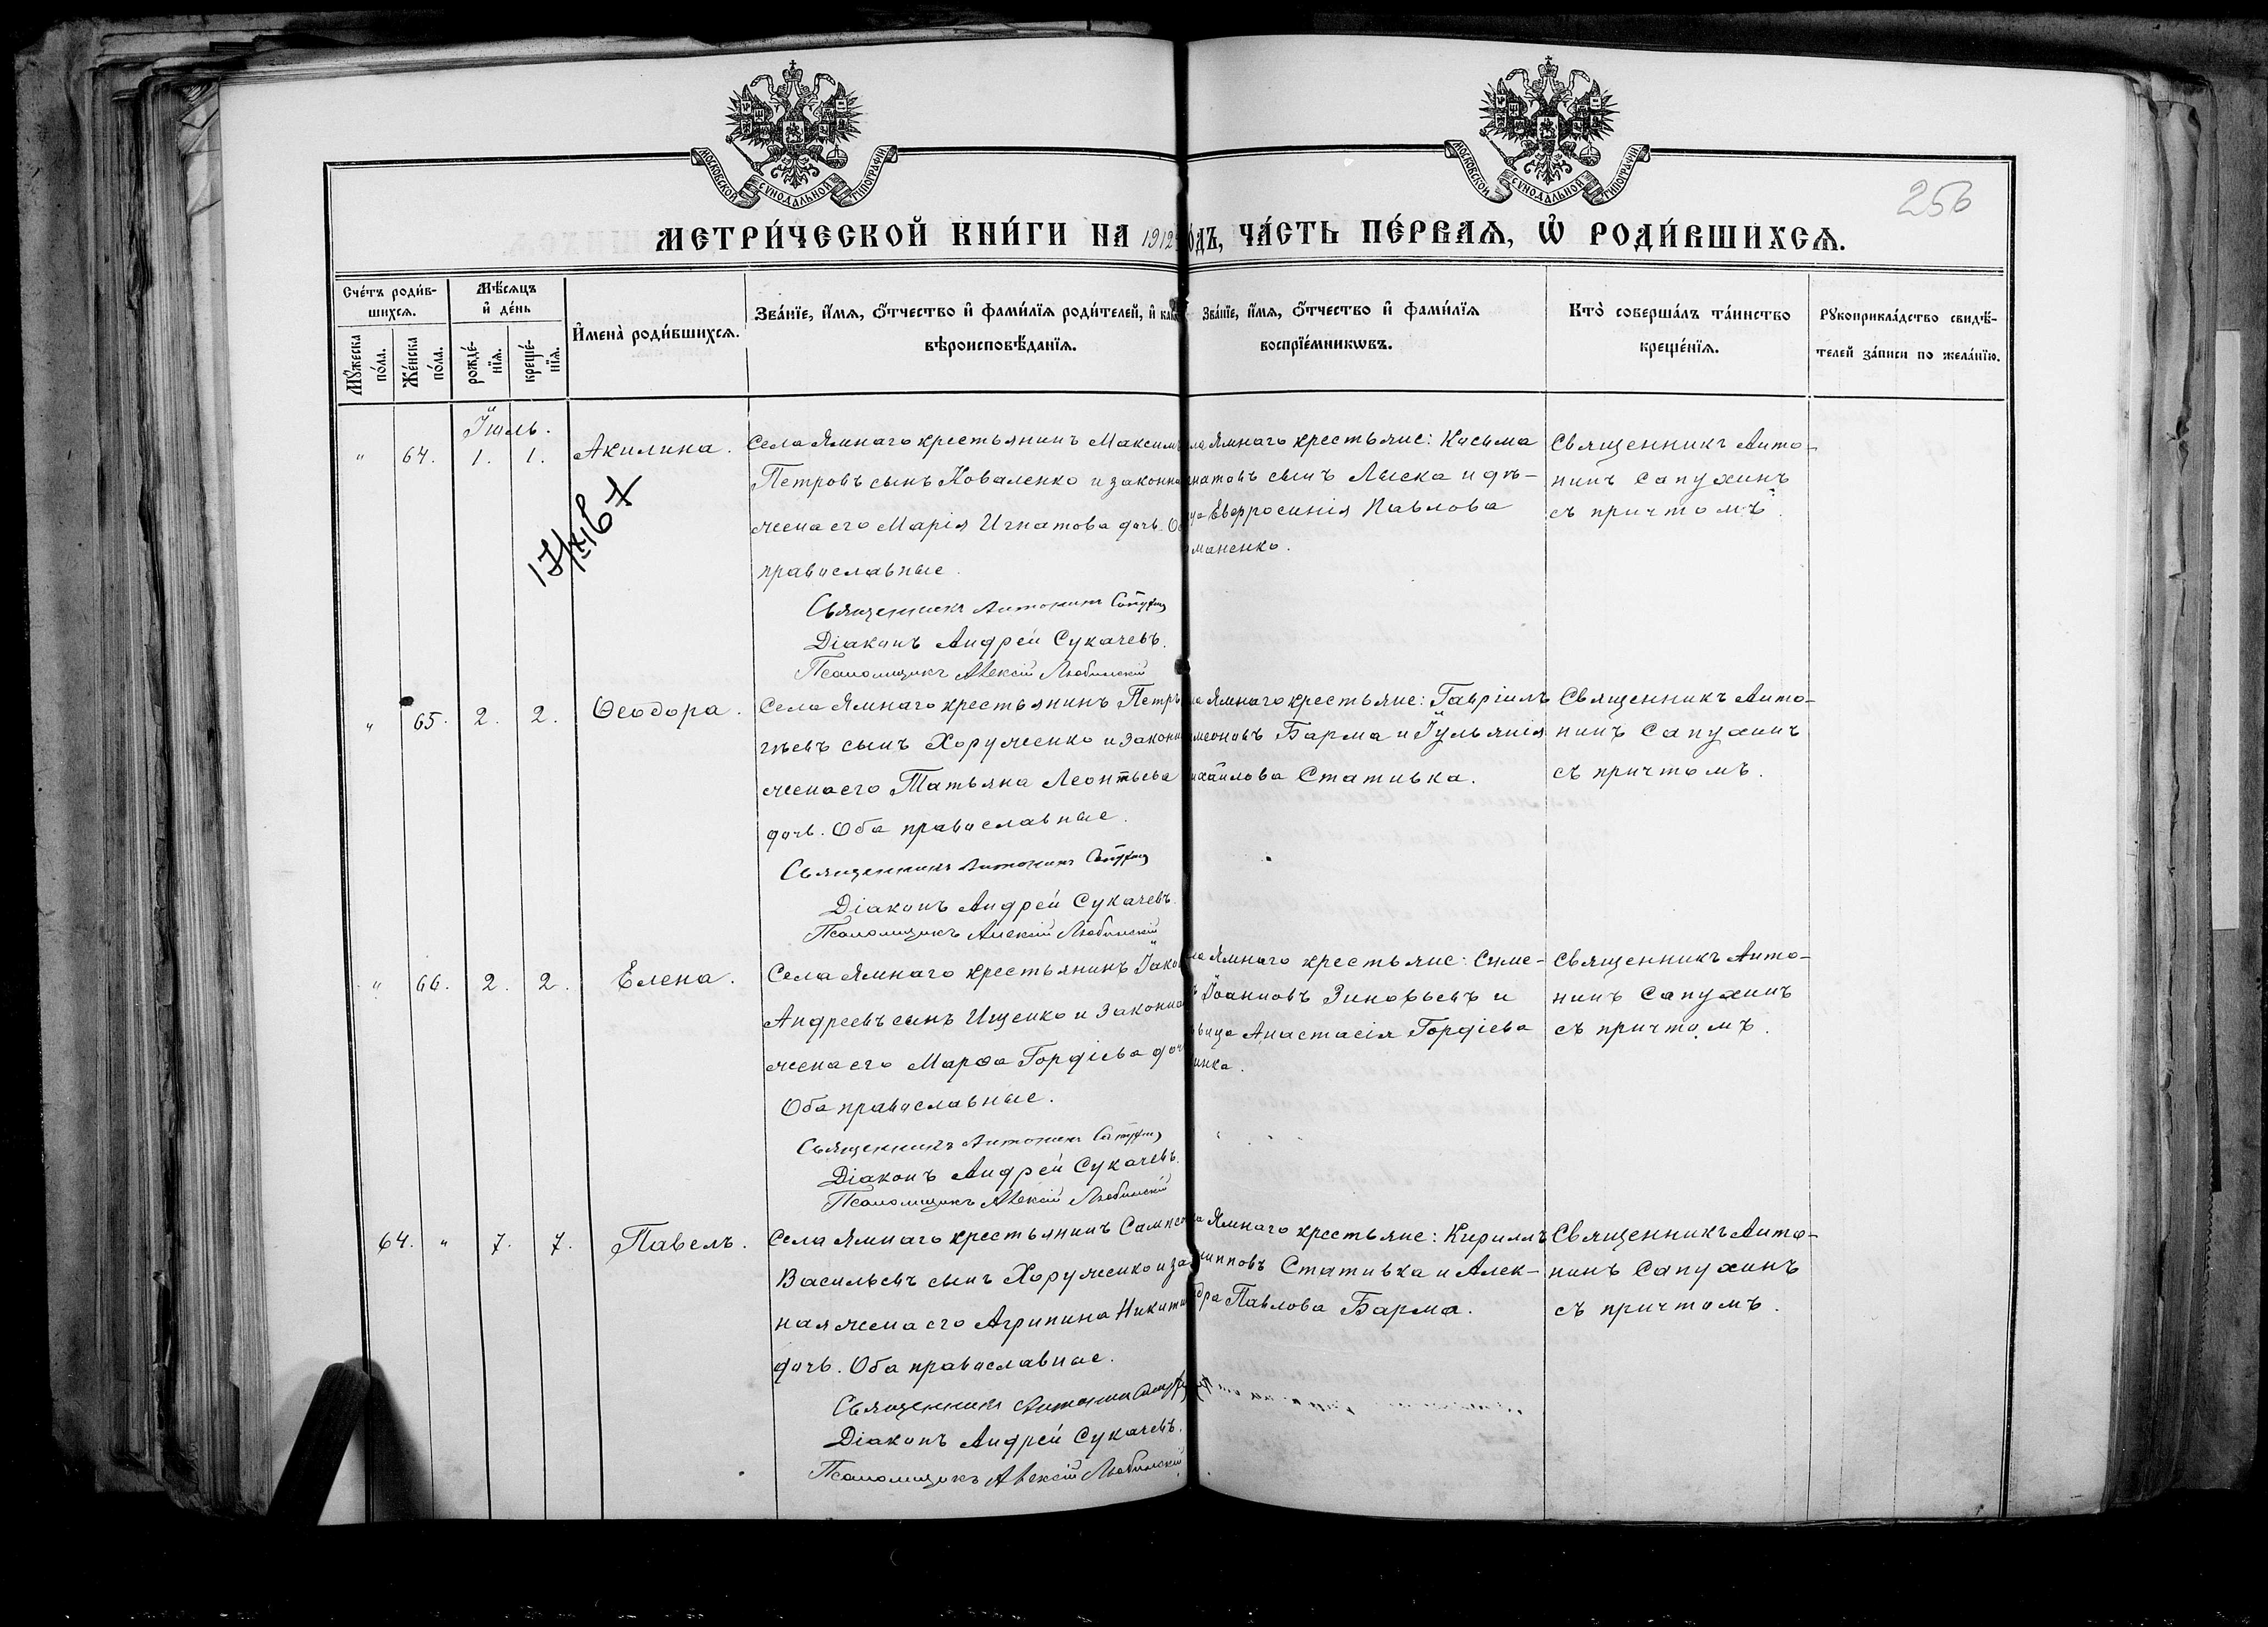 МОСКОВСКОЙ СѴНОДАЛЬНОЙ ТИПОГРАФІИ
МОСКОВСКОЙ СѴНОДАЛЬНОЙ ТИПОГРАФІИ
256
МЕТРИ́ЧЕСКОЙ КНИ́ГИ НА 1912 ОДЪ, ЧА́СТЬ ПЕ́РВАѦ, Ѽ РОДИ́ВШИХСѦ.
Сче́тъ роди́в-
шихсѧ.
Мѣ́сѧцъ
и҆ де́нь
Мꙋ́жеска
по́ла.
Же́нска
по́ла.
рожде́-
нїѧ.
креще́-
нїѧ.
И҆мена̀ роди́вшихсѧ.
Зва́нїе, и҆́мѧ, ѻ҆́тчество и҆ фами́лїѧ роди́телей, и҆
вѣроисповѣ́данїѧ.
Зва́нїе, и҆́мѧ, ѻ҆́тчество и҆ фами́лїѧ
воспрїе́мникѡвъ.
Кто̀ соверша́лъ та́инство
креще́нїѧ.
Рꙋкоприкла́дство свидѣ́-
телей за́писи по жела́нїю.
Іюль.
" 64. 1. 1. Акилина.
Села Ямнаго крестьянинъ Максимъ
Петровъ сынъ Коваленко и законна
жена его Марія Игнатова дочь. Об
православные.
Священникъ Антонинъ Сапухин
Діаконъ Андрей Сукачевъ.
Псаломщикъ Алексій Любинскій
ла Ямнаго крестьяне: Косьма
гнатовъ сынъ Лыска и дѣ-
ца Евфросинія Павлова
маненко.
Священникъ Анто-
нинъ Сапухинъ
съ причтомъ.
" 65. 2. 2. Ѳеодора.
Села Ямнаго крестьянинъ Петръ
гѣевъ сынъ Хоруженко и законн
жена его Татьяна Леонтьева
дочь. Оба православные.
Священникъ Антонинъ Сапухин
Діаконъ Андрей Сукачевъ.
Псаломщикъ Алексій Любинскій
ла Ямнаго крестьяне: Гавріилъ
меоновъ Барма и Іульянія
ихайлова Стативка.
Священникъ Анто-
нинъ Сапухинъ
съ причтомъ.
" 66. 2. 2. Елена.
Села Ямнаго крестьянинъ Іаков
Андреевъ сынъ Ищенко и законна
жена его Марѳа Гордіева доч
Оба православные.
Священникъ Антонинъ Сапухин
Діаконъ Андрей Сукачевъ.
Псаломщикъ Алексій Любинскій
ла Ямнаго крестьяне: Симе-
ъ Іоанновъ Зиновьевъ и
вица Анастасія Гордіева
инка.
Священникъ Анто-
нинъ Сапухинъ
съ причтомъ.
64. " 7. 7. Павелъ.
Села Ямнаго крестьянинъ Сампсо
Васильевъ сынъ Хоруженко и за
ная жена его Агрипина Никити
дочь. Оба православные.
Священникъ Антонинъ Сапухин
Діаконъ Андрей Сукачевъ.
Псаломщикъ Алексій Любинскій
ла Ямнаго крестьяне: Кириллъ
липповъ Стативка и Алек-
дра Павлова Барма.
Священникъ Анто-
нинъ Сапухинъ
съ причтомъ.